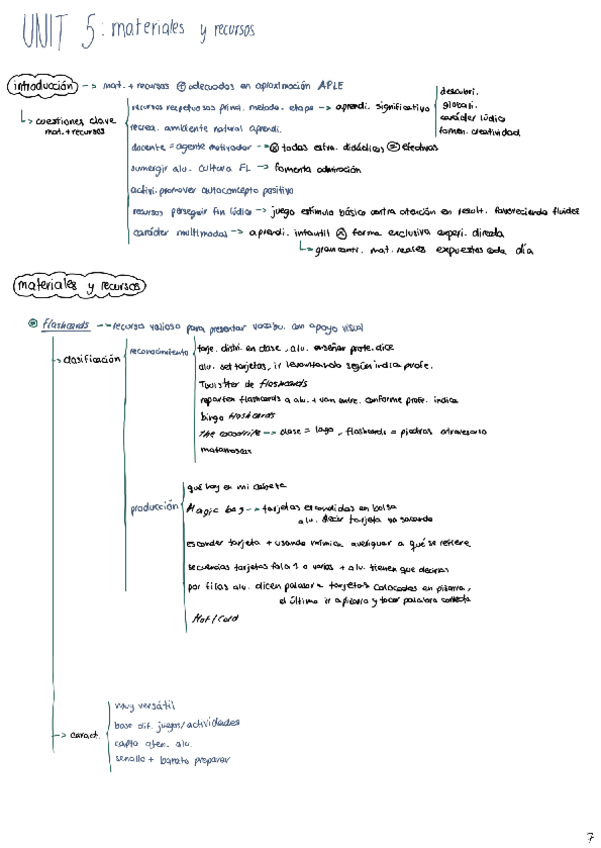 UNIT 5: materiales y recursos
introducción -> mat. + recursos ⊕ adecuados en aproximación APLE
-> cuestiones clave
mat. + recursos
recursos respetuosos princi. metodo. etapa -> aprendi. significativo
descubri.
globali.
carácter lúdico
fomen. creatividad
recrea. ambiente natural aprendi.
docente = agente motivador -> ⊗ todas estra. didácticas ⊜ efectivas
sumergir alu. cultura FL -> fomenta admiración
activi. promover autoconcepto positivo
recursos perseguir fin lúdico -> juego estímulo básico centra atención en result. favoreciendo fluidez
carácter multimodas -> aprendi. infantil ⊗ forma exclusiva experi. directa
-> gran canti. mat. reales expuestos cada día
materiales y recursos
flashcards --> recursos valioso para presentar vocabu. con apoyo visual
-> clasificación
reconocimiento
tarje. distri. en clase, alu. enseñar profe. dice
alu. set tarjetas, ir levantando según indica profe.
Twister de flashcards
reparten flashcards a alu. + van entre. conforme profe. indica
bingo flashcards
the -> clase = lago, flashcards = piedras atravesarlo
matamoscas
producción
qué hay en mi cabeza
Magic bag -> tarjetas escondidas en bolsa
alu. decir tarjeta va sacando
esconder tarjeta + usando mímica averiguar a qué se refiere
secuencias tarjetas fala 1 o varias + alu. tienen que decirlas
por filas alu. dicen palabra = tarjetas colocadas en pizarra,
el último ir a pizarra y tocar palabra correcta
Hot / Cold
-> caract.
muy versátil
base dif. juegos/actividades
capta aten. alu.
sencillo + barato preparar
7